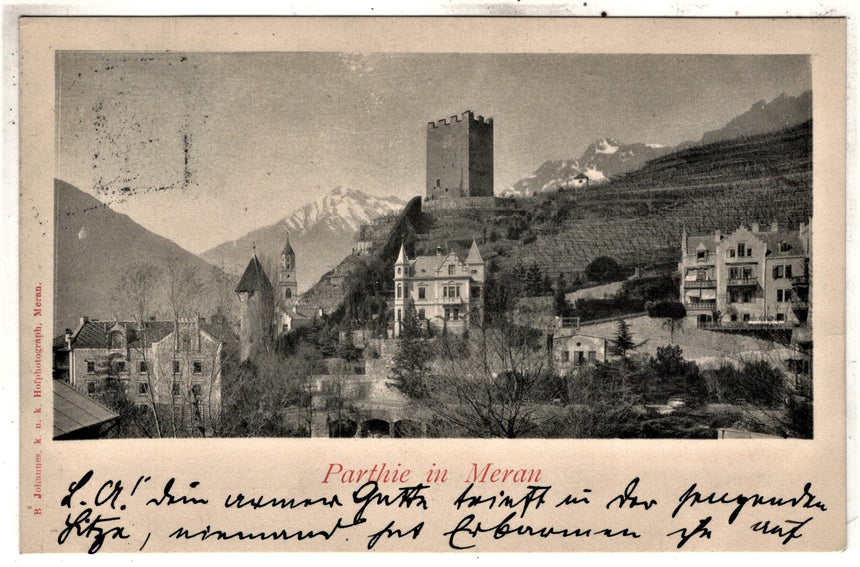 B Johannes, k. u. k. Hofphotograph, Meran.
Parthie in Meran
L. A.! dein armer Gatte trieft in der sengenden
Hitze, niemand hat Erbarmen ihn auf